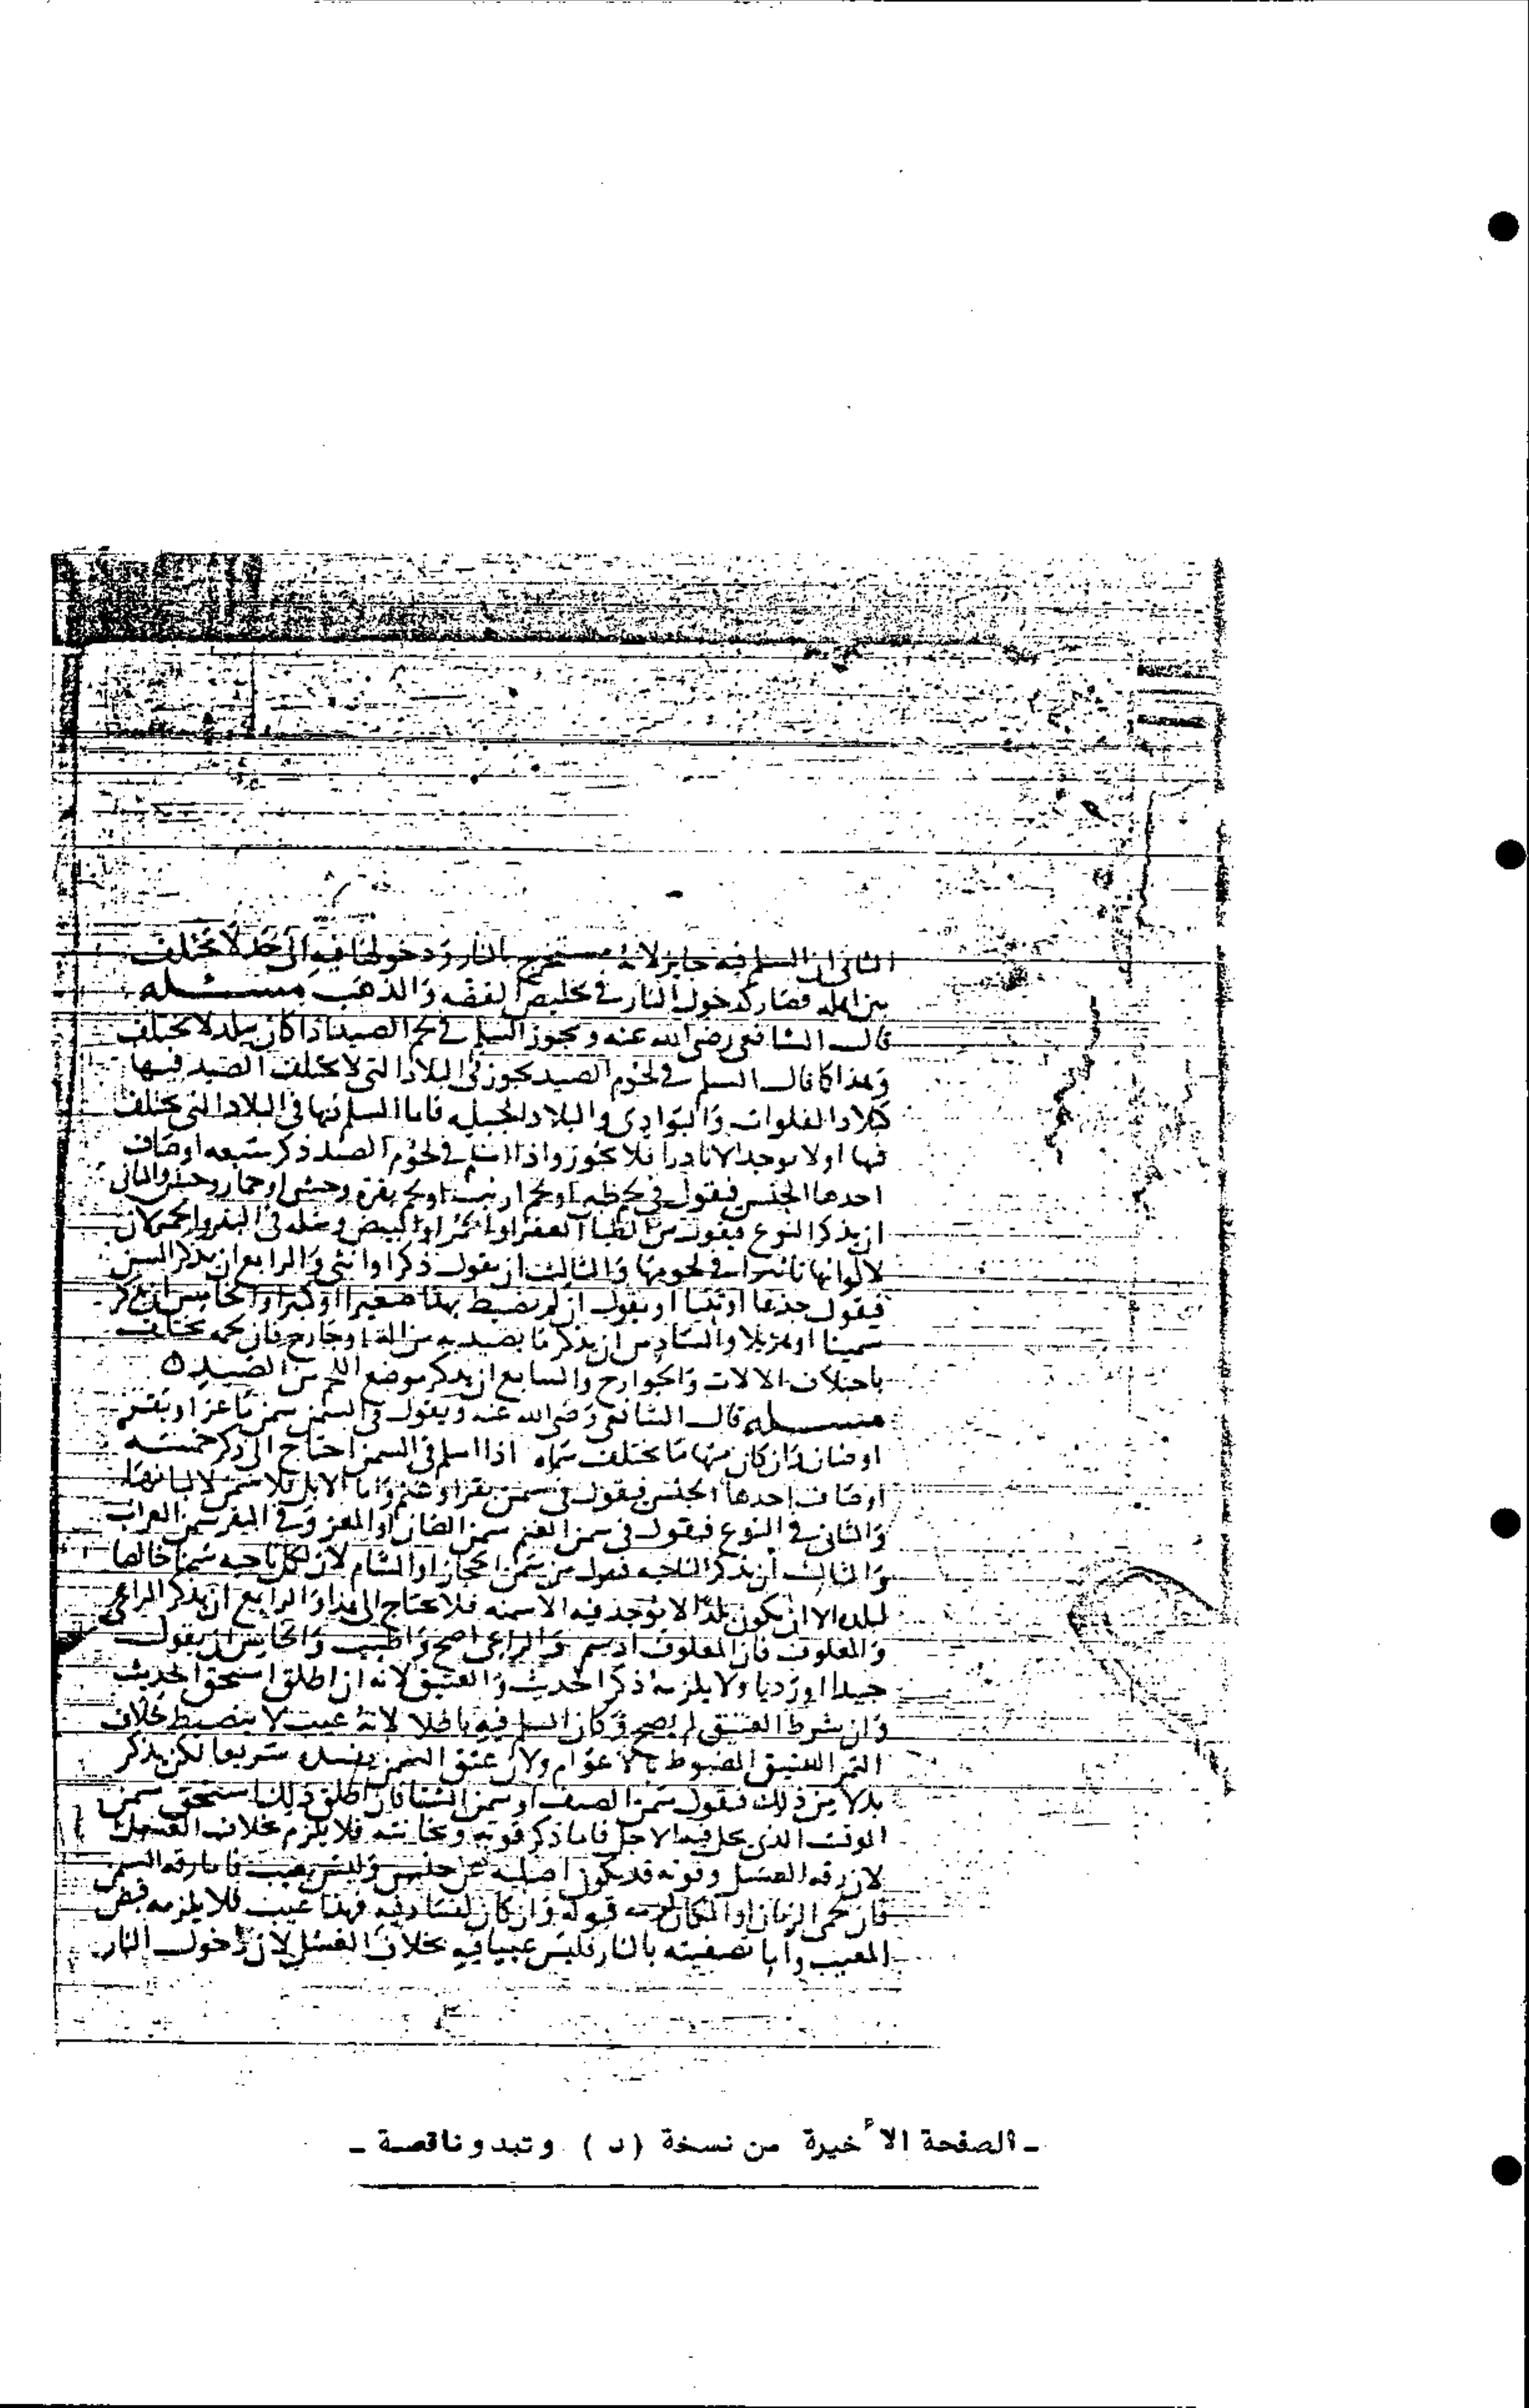 الثانى ان السلم فيه جايز لانه مستخرج بالنار ودخولها فيه الى حد لا تختلف
بين اهله فصار كدخول النار فى تخليص الفضه والذهب مسئله
قال الشافعى رضى الله عنه ويجوز السلم فى لحم الصيد اذا كان ببلد لا يختلف
وهذا كما قال السلم فى لحوم الصيد يجوز فى البلاد التى لا يختلف الصيد فيها
كبلاد الفلوات والبوادى والبلاد الجبليه فاما السلم فيها فى البلاد التى يختلف
فيها اولا يوجد الا نادرا فلا يجوز واذا اسلم فى لحوم الصيد ذكر سبعه اوصاف
احدها الجنس فيقول فى لحم ظبى او لحم ارنب او لحم بقر وحش او حمار وحش والثانى
ان يذكر النوع فيقول من الظبا العفر او الحمر او البيض ومثله فى البقر والحمر لان
لالوانها تاثيرا فى لحومها والثالث ان يقول ذكرا او انثى والرابع ان يذكر السن
فيقول جذعا او ثنيا او يقول ان لم يضبط بهذا صغيرا او كبيرا والخامس ان يذكر
سمينا او هزيلا والسادس ان يذكر ما يصيد به من اله او جارح فان لحمه يختلف
باختلاف الالات والجوارح والسابع ان يذكر موضع اللحم من الصيد ه
مسئله قال الشافعى رضى الله عنه ويقول فى السمن سمن ماعز او بقر
وان كان منها ما يختلف سماه اذا اسلم فى السمن احتاج الى ذكر خمسه
اوصاف احدها الجنس فيقول فى سمن بقر او غنم واما الابل فلا سمن لالبانها
والثانى فى النوع فيقول فى سمن الغنم سمن الضان او المعز وفى البقر سمن العراب
والثالث ان يذكر الناحيه فيقول من سمن الحجاز او الشام لان لكل ناحيه سمنا خالصا
لبلده الا ان يكون بلدا لا يوجد فيه الا سمنه فلا يحتاج الى هذا والرابع ان يذكر الراعى
والمعلوف فان المعلوف ادسم والراعى اصح واطيب والخامس ان يقول
جيدا او رديا ولا يلزمه ذكر الحديث والعتيق لانه ان اطلق استحق الحديث
وان شرط العتيق لم يصح وكان السلم فيه باطلا لانه عيب لا ينضبط بخلاف
التمر العتيق المضبوط بالاعوام ولان عتق السمن يفسده سريعا لكن يذكر
بدلا من ذلك فيقول سمن الصيف او سمن الشتا فان اطلق ذلك استحق سمن
الوقت الذى يحل فيه الاجل فاما ذكر قوته وثخانته فلا يلزم بخلاف العسل
لان رقه العسل وقوته قد يكون اصليه عن جنس وليس بعيب فاما رقه السمن
فان لحر الزمان او المكان لزمه قبوله وان كان لفساد فيه فهذا عيب فلا يلزمه قبض
المعيب واما تصفيته بالنار فليس عيبا فيه بخلاف العسل لان دخول النار
- الصفحة الأخيرة من نسخة (د) وتبدو ناقصة -